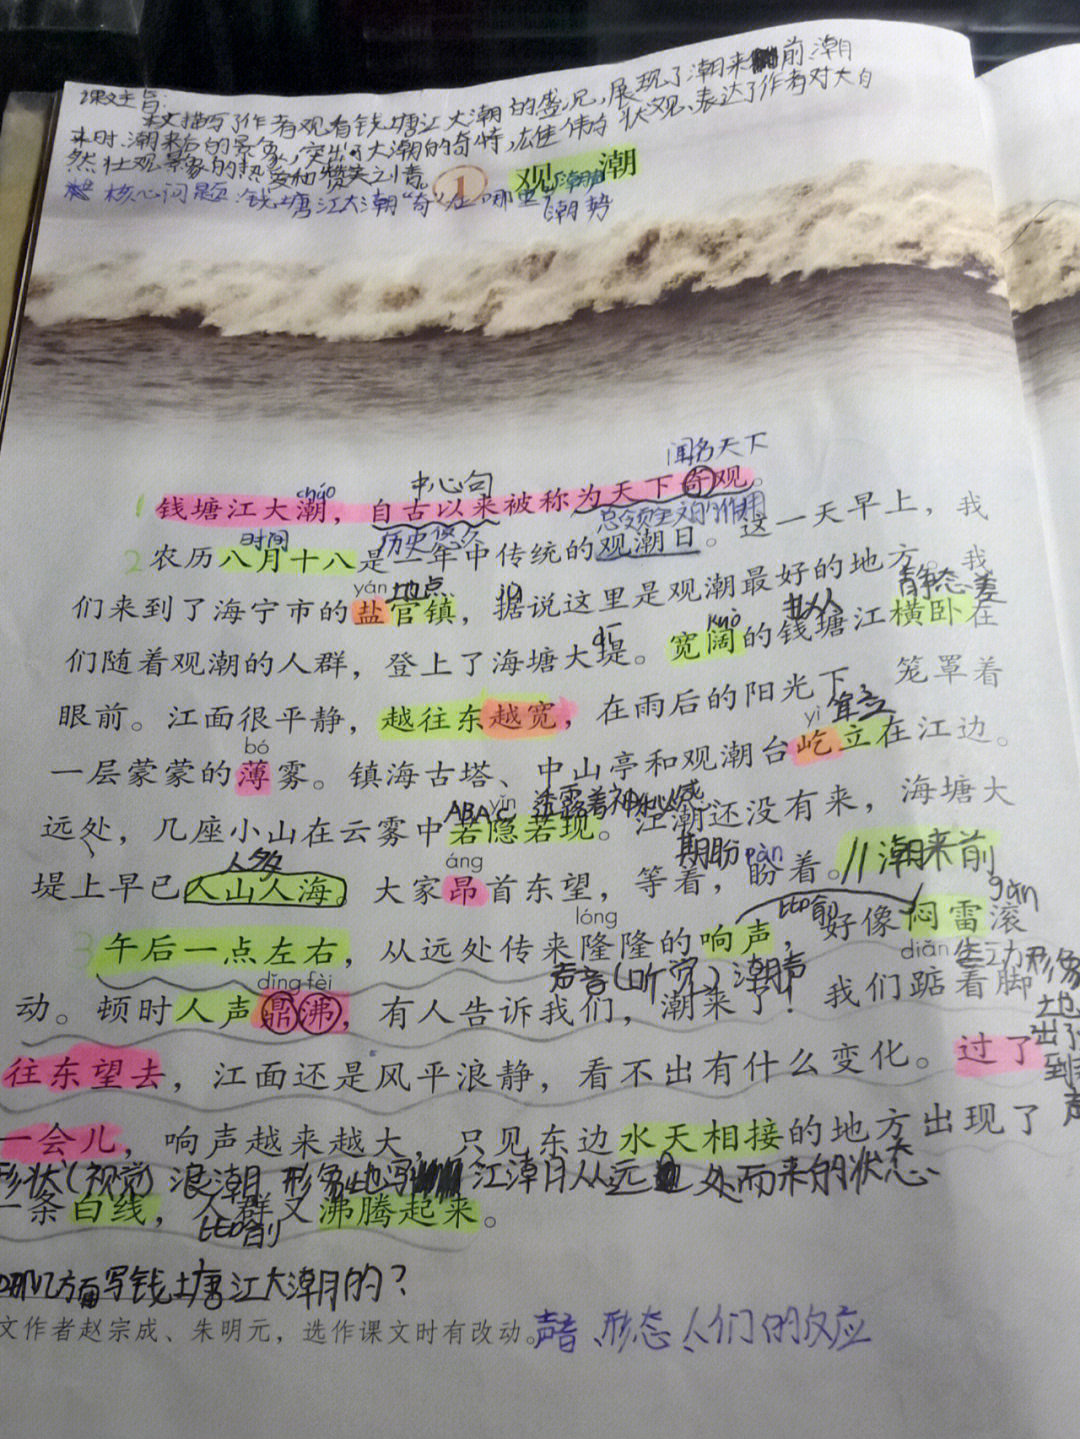 课文主旨:
本文描写了作者观看钱塘江大潮的盛况,展现了潮来前、潮
来时、潮来后的景象,突出了大潮的奇特,雄伟的状观、表达了作者对大自
然壮观景象的热爱和赞美之情。
核心问题:钱塘江大潮“奇”在哪里?
潮声
潮势
1 观潮
闻名天下
中心句
cháo
1 钱塘江大潮,自古以来被称为天下奇观。
总领全文的作用
时间 历史悠久
2 农历八月十八是一年中传统的观潮日。这一天早上,我
yán 地点 jù
们来到了海宁市的盐官镇,据说这里是观潮最好的地方。我
dī kuò 静态美
们随着观潮的人群,登上了海塘大堤。宽阔的钱塘江横卧在
眼前。江面很平静,越往东越宽,在雨后的阳光下,笼罩着
bó yì 耸立
一层蒙蒙的薄雾。镇海古塔、中山亭和观潮台屹立在江边。
ABAC yǐn 透露着神秘感
远处,几座小山在云雾中若隐若现。江潮还没有来,海塘大
人多 áng 期盼 pàn
堤上早已人山人海。大家昂首东望,等着,盼着。//潮来前
lóng 比喻 gǔn
3 午后一点左右,从远处传来隆隆的响声,好像闷雷滚
dǐng fèi 声音(听觉)潮声 diǎn 生动形象
动。顿时人声鼎沸,有人告诉我们,潮来了!我们踮着脚
地
往东望去,江面还是风平浪静,看不出有什么变化。过了
出了
到
声
一会儿,响声越来越大,只见东边水天相接的地方出现了
形状(视觉)浪潮 形象地写 江潮从远处而来的状态
一条白线,人群又沸腾起来。
比喻
哪几方面写钱塘江大潮的?
文作者赵宗成、朱明元,选作课文时有改动。
声音、形态、人们的反应